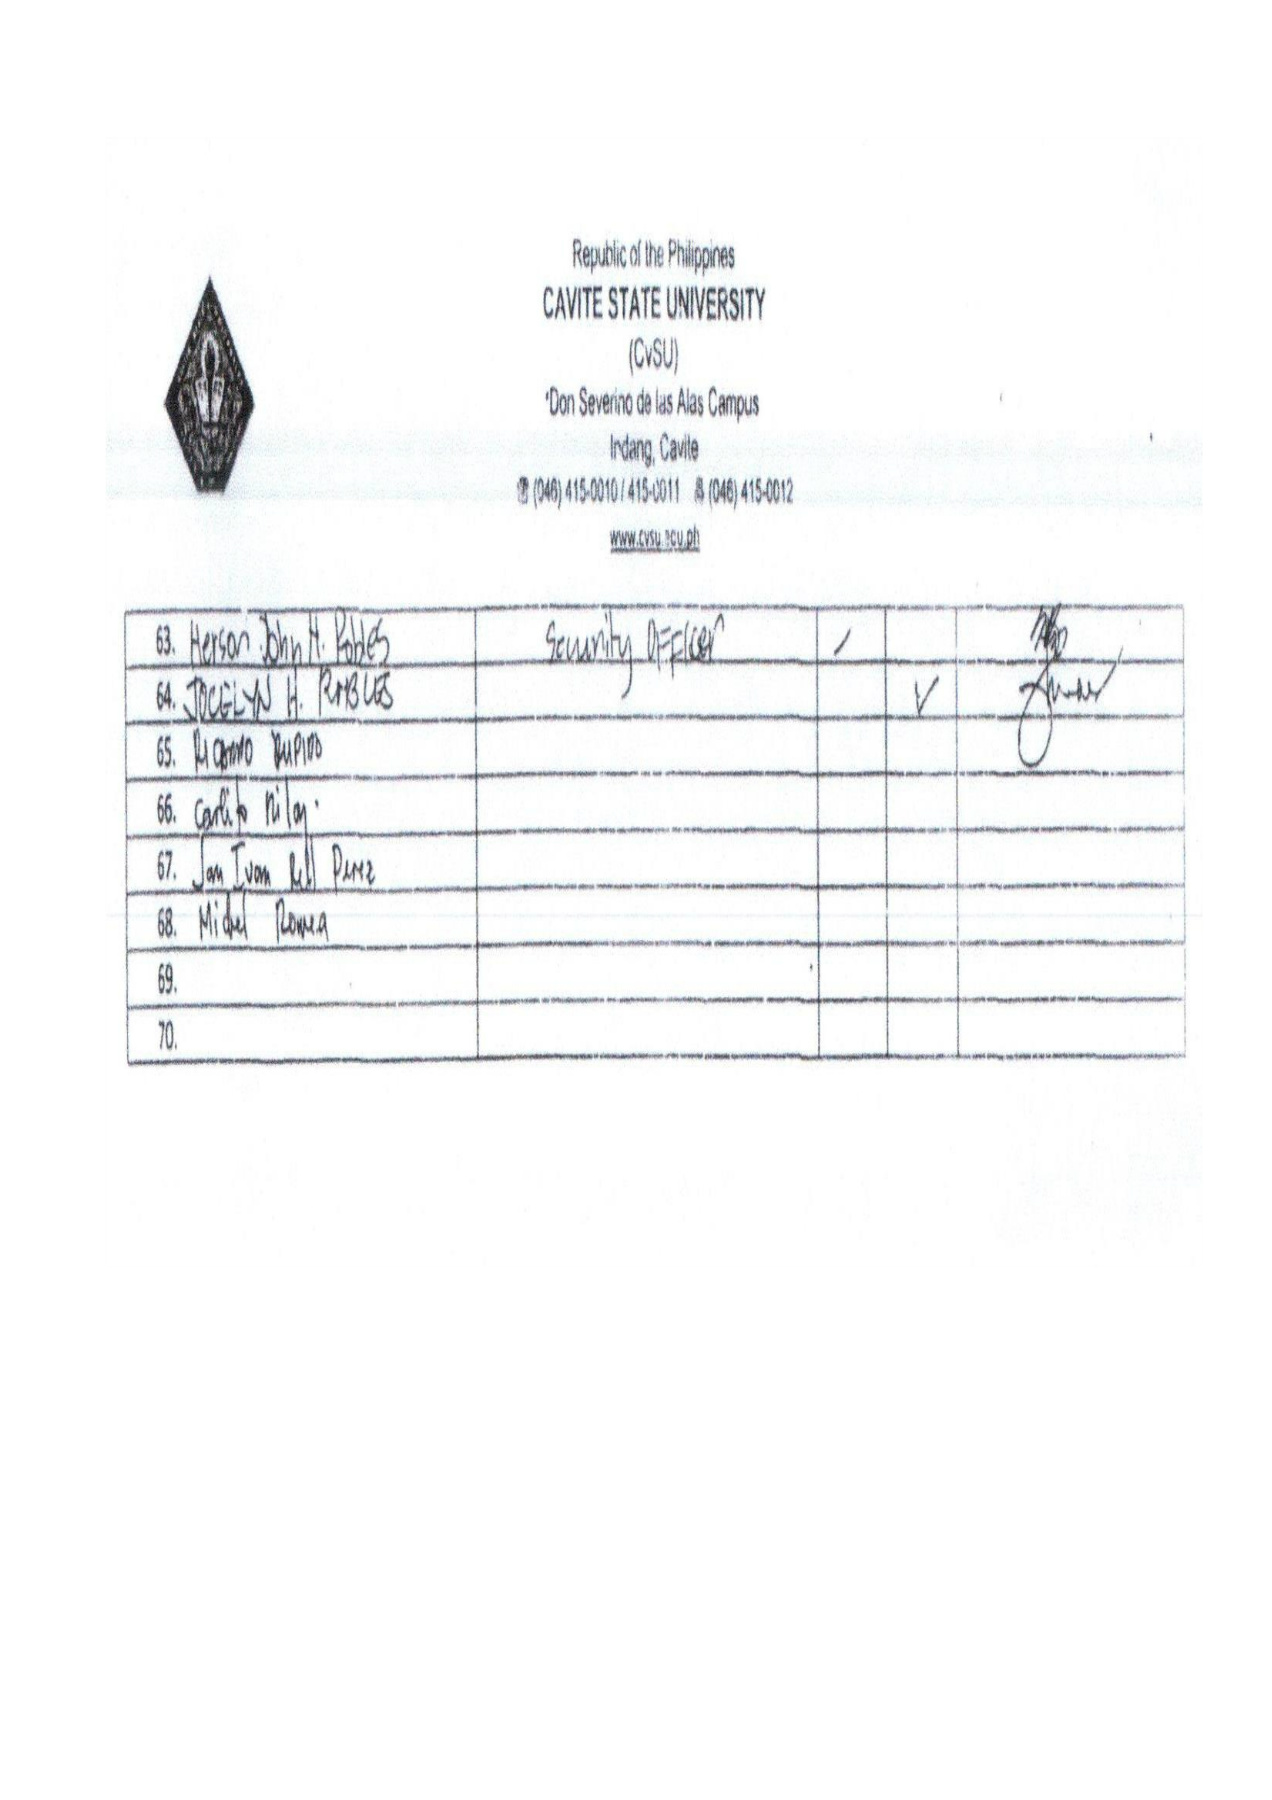 Republic of the Philippines
CAVITE STATE UNIVERSITY
(CvSU)
Don Severino de las Alas Campus
Indang, Cavite
(046) 415-0010 / 415-0011 (046) 415-0012
www.cvsu.edu.ph
63. Herson John H. Robles Security OFFicer
64. JOCELYN H. ROBLES
65. RICARDO
66. Carlito
67. Jan Ivan Rell Perez
68. Michel Romea
69.
70.